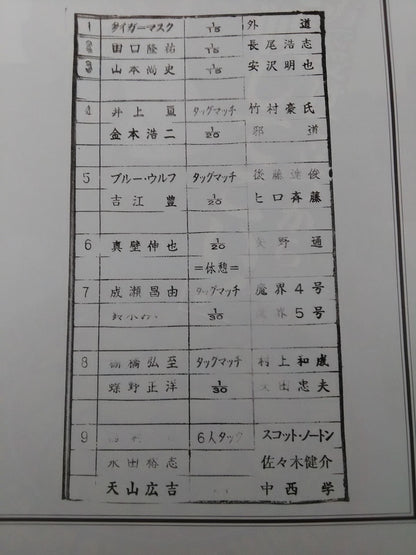 1 タイガーマスク 1/15 外道
2 田口隆祐 1/15 長尾浩志
3 山本尚史 1/15 安沢明也
4 井上亘 タッグマッチ 竹村豪氏
金本浩二 1/20 邪道
5 ブルー・ウルフ タッグマッチ 後藤達俊
吉江豊 1/20 ヒロ斉藤
6 真壁伸也 1/20 矢野通
=休憩=
7 成瀬昌由 タッグマッチ 魔界4号
1/30 魔界5号
8 棚橋弘至 タッグマッチ 村上和成
蝶野正洋 1/30 忠夫
9 6人タッグ スコット・ノートン
永田裕志 佐々木健介
天山広吉 中西学